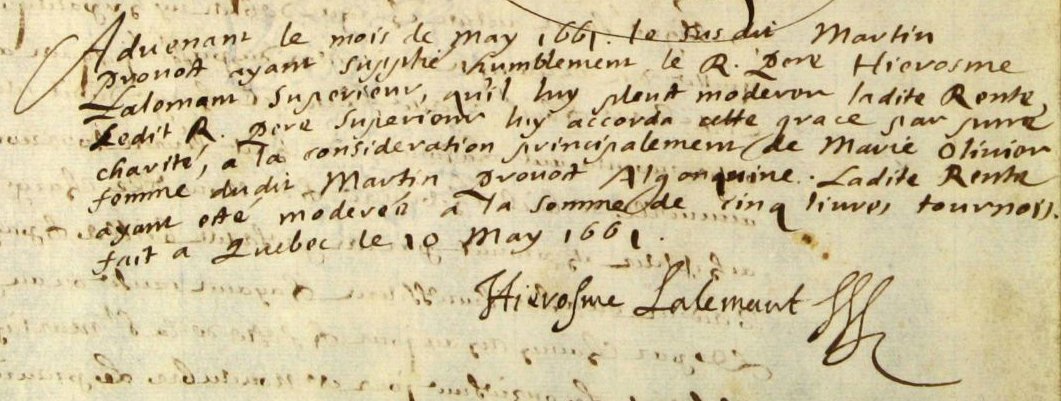 Advenant le mois de May 1661. le susdit Martin
Provost ayant supplié humblement le R. Pere Hierosme
Lalemant Superieur, qu'il luy pleust moderer ladite Rente,
Ledit R. Pere Superieur luy accorda cette grace par pure
charité, a la consideration principalement de Marie Olivier
femme dudit Martin Provost Algonquine. Ladite Rente
ayant esté moderée a la somme de cinq livres tournois.
fait a Quebec le 10 May 1661.
Hierosme Lalemant